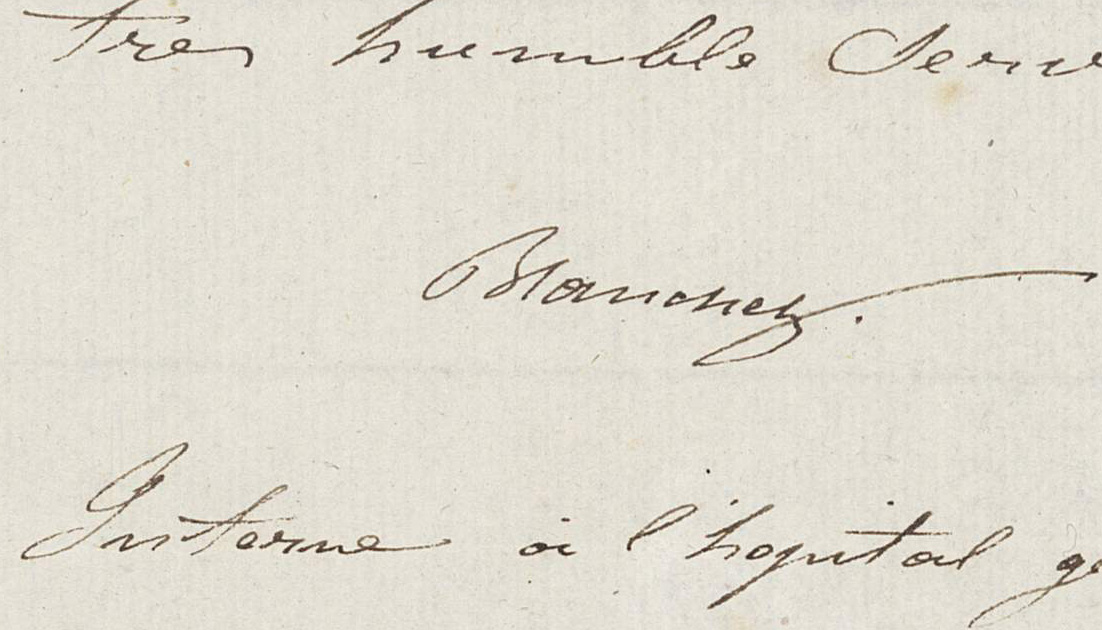 tres humble Serv
Blanchet.
Interne à l'hopital ge